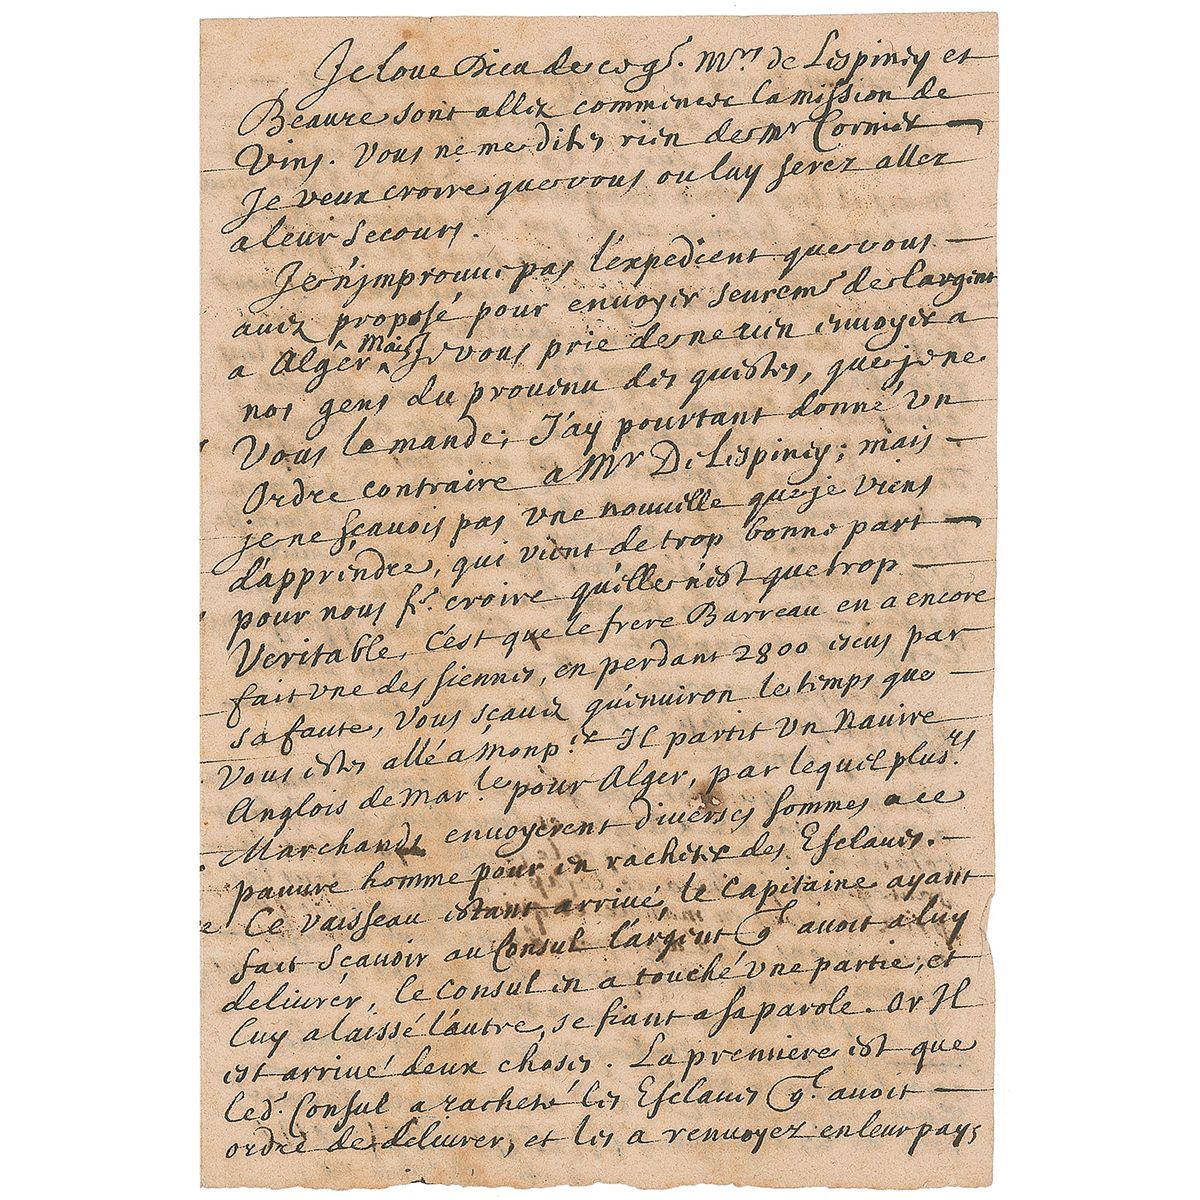 Je loue Dieu de ce q^e. M^rs de Lespiney et
Beaure sont allez commencer la mission de
Vins. Vous ne me dites rien de M^r Cornier —
Je veux croire que vous ou luy serez allez
a leur secours.
Je n'improuve pas l'expedient que vous —
avez proposé pour envoyer seurem^t de l'argent
a Alger Mais Je vous prie de ne rien envoyer a
nos gens du provenu des questes, que je ne
Vous le mande; J'ay pourtant donné un
Ordre contraire a M^r De Lespiney; mais —
je ne sçavois pas une nouvelle que je viens
d'apprendre, qui vient de trop bonne part —
pour nous f^e. croire qu'elle n'est que trop —
Veritable, C'est que le frere Barreau en a encore
fait une des siennes, en perdant 2800 escus par
sa faute, Vous sçavez qu'environ le temps que —
Vous estes allé a Monp^er. Il partit un Navire
Anglois de Mar^le pour Alger, par lequel plus^rs
Marchands envoyerent diverses sommes a ce
pauvre homme pour en racheter des Esclaves. —
Ce vaisseau estant arrivé, le Capitaine ayant
fait sçavoir au Consul l'argent q^l avoit a luy
delivrer, le Consul en a touché une partie, et
luy a laissé l'autre, se fiant a sa parole. Or Il
est arrivé deux choses. La premiere est que
led^t. Consul a racheté les Esclaves q^l avoit —
ordre de delivrer, et les a renvoyez en leur pays